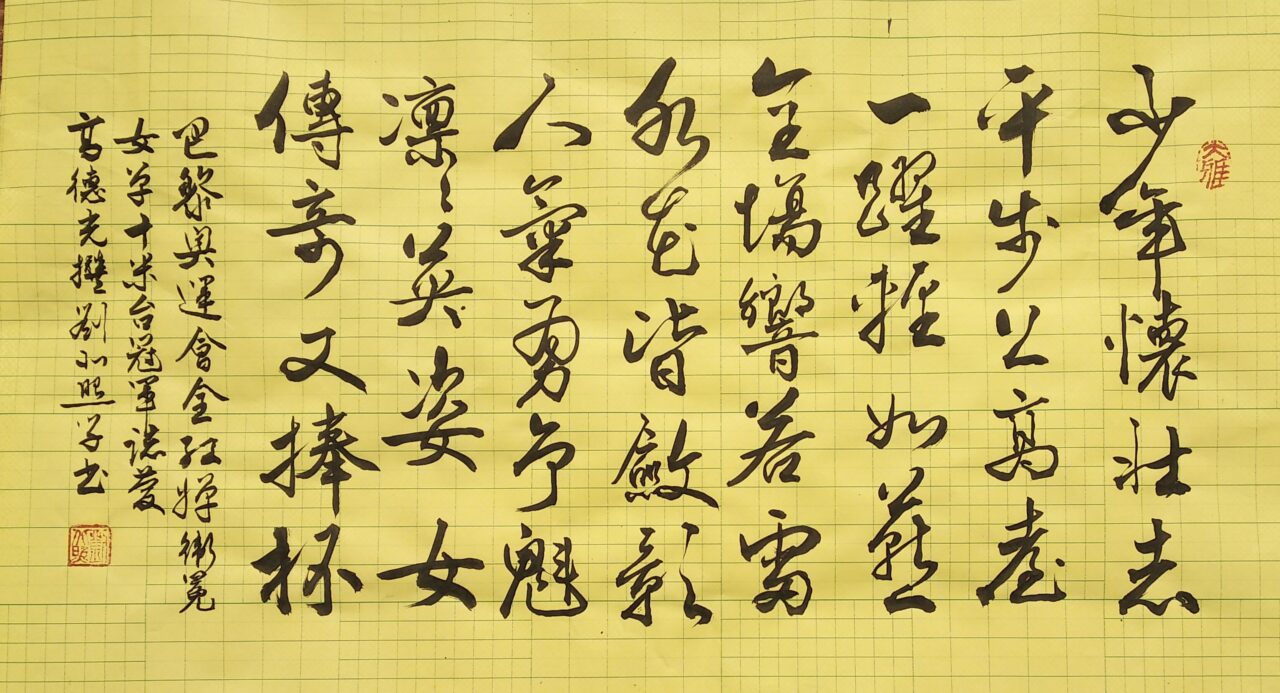 大雅
少年懷壯志
平步上高臺
一躍輕如燕
全場響若雷
水花皆斂影
人氣勇爭魁
凜〻英姿女
傳奇又捧杯
巴黎奧運會全紅嬋衛冕
女单十米台冠軍誌慶
高德光撰劉熙学书